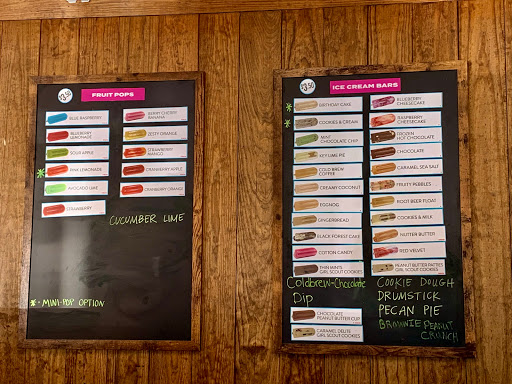 $3.50
FRUIT POPS
BLUE RASPBERRY
BLUEBERRY
LEMONADE
SOUR APPLE
PINK LEMONADE
AVOCADO LIME
STRAWBERRY
BERRY CHERRY
BANANA
ZESTY ORANGE
STRAWBERRY
MANGO
CRANBERRY APPLE
CRANBERRY ORANGE
CUCUMBER LIME
* - MINI-POP OPTION
$3.50
ICE CREAM BARS
BIRTHDAY CAKE
COOKIES & CREAM
MINT
CHOCOLATE CHIP
KEY LIME PIE
COLD BREW
COFFEE
CREAMY COCONUT
EGGNOG
GINGERBREAD
BLACK FOREST CAKE
COTTON CANDY
THIN MINTS
GIRL SCOUT COOKIES
Coldbrew-Chocolate
Dip
CHOCOLATE
PEANUT BUTTER CUP
CARAMEL DELITE
GIRL SCOUT COOKIES
BLUEBERRY
CHEESECAKE
RASPBERRY
CHEESECAKE
FROZEN
HOT CHOCOLATE
CHOCOLATE
CARAMEL SEA SALT
FRUITY PEBBLES
ROOT BEER FLOAT
COOKIES & MILK
NUTTER BUTTER
RED VELVET
PEANUT BUTTER PATTIES
GIRL SCOUT COOKIES
COOKIE DOUGH
DRUMSTICK
PECAN PIE
BROWNIE PEANUT
CRUNCH